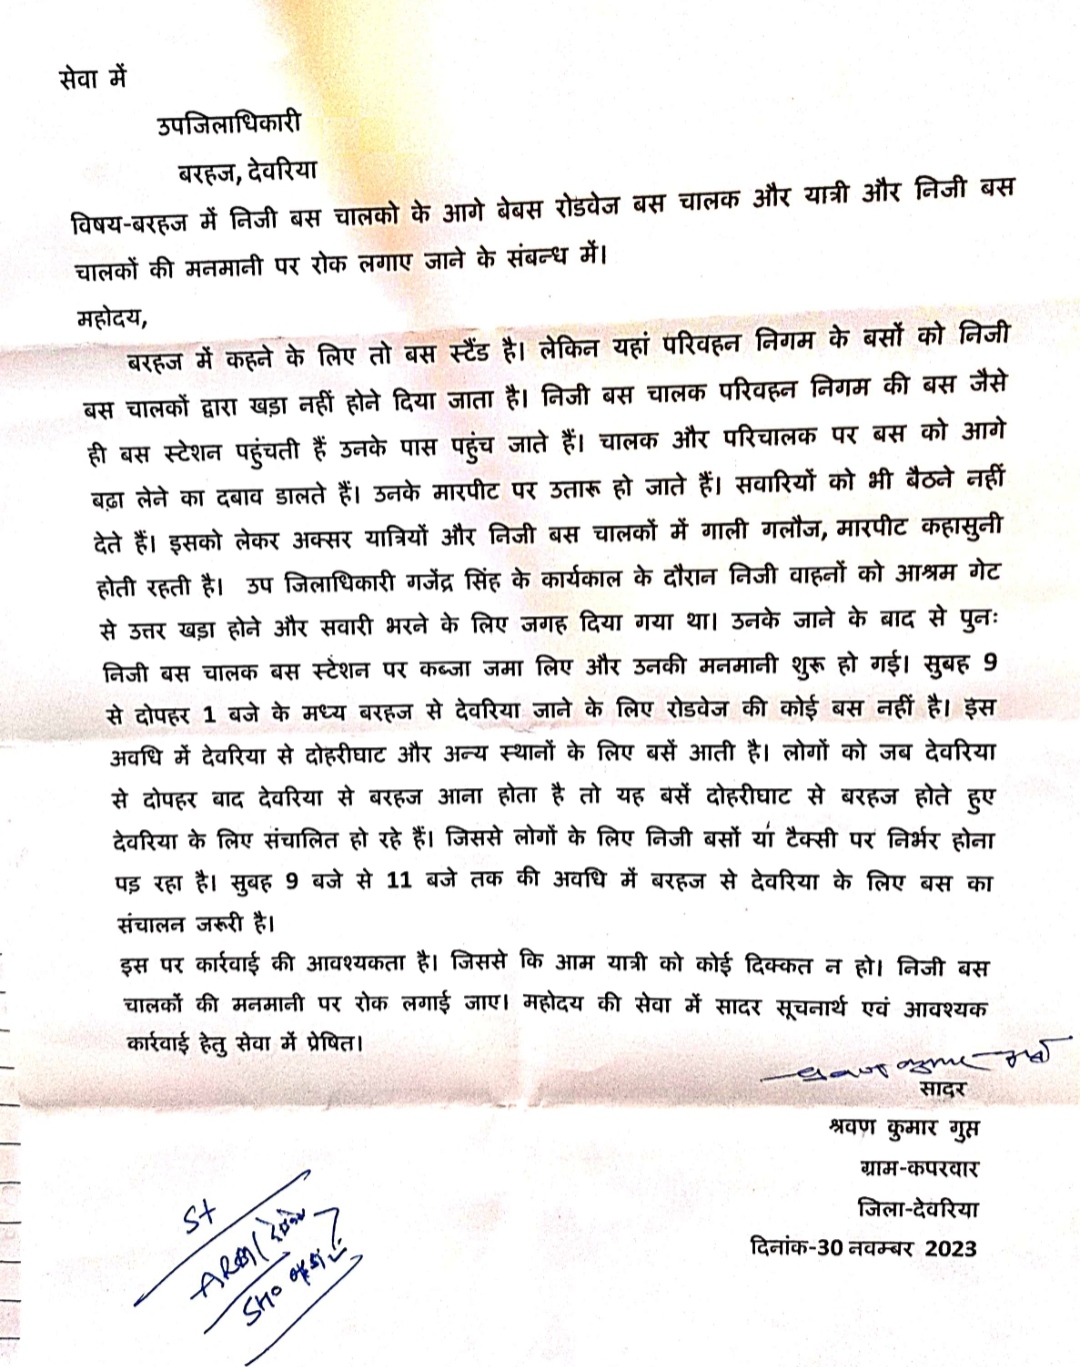 सेवा में
उपजिलाधिकारी
बरहज, देवरिया
विषय-बरहज में निजी बस चालको के आगे बेबस रोडवेज बस चालक और यात्री और निजी बस
चालकों की मनमानी पर रोक लगाए जाने के संबन्ध में।
महोदय,
बरहज में कहने के लिए तो बस स्टैंड है। लेकिन यहां परिवहन निगम के बसों को निजी
बस चालकों द्वारा खड़ा नहीं होने दिया जाता है। निजी बस चालक परिवहन निगम की बस जैसे
ही बस स्टेशन पहुंचती हैं उनके पास पहुंच जाते हैं। चालक और परिचालक पर बस को आगे
बढ़ा लेने का दबाव डालते हैं। उनके मारपीट पर उतारू हो जाते हैं। सवारियों को भी बैठने नहीं
देते हैं। इसको लेकर अक्सर यात्रियों और निजी बस चालकों में गाली गलौज, मारपीट कहासुनी
होती रहती है। उप जिलाधिकारी गजेंद्र सिंह के कार्यकाल के दौरान निजी वाहनों को आश्रम गेट
से उत्तर खड़ा होने और सवारी भरने के लिए जगह दिया गया था। उनके जाने के बाद से पुनः
निजी बस चालक बस स्टेशन पर कब्जा जमा लिए और उनकी मनमानी शुरू हो गई। सुबह 9
से दोपहर 1 बजे के मध्य बरहज से देवरिया जाने के लिए रोडवेज की कोई बस नहीं है। इस
अवधि में देवरिया से दोहरीघाट और अन्य स्थानों के लिए बसें आती है। लोगों को जब देवरिया
से दोपहर बाद देवरिया से बरहज आना होता है तो यह बसें दोहरीघाट से बरहज होते हुए
देवरिया के लिए संचालित हो रहे हैं। जिससे लोगों के लिए निजी बसों या टैक्सी पर निर्भर होना
पड़ रहा है। सुबह 9 बजे से 11 बजे तक की अवधि में बरहज से देवरिया के लिए बस का
संचालन जरूरी है।
इस पर कार्रवाई की आवश्यकता है। जिससे कि आम यात्री को कोई दिक्कत न हो। निजी बस
चालकों की मनमानी पर रोक लगाई जाए। महोदय की सेवा में सादर सूचनार्थ एवं आवश्यक
कार्रवाई हेतु सेवा में प्रेषित।
सादर
श्रवण कुमार गुप्त
ग्राम-कपरवार
जिला-देवरिया
दिनांक-30 नवम्बर 2023
St
SHO